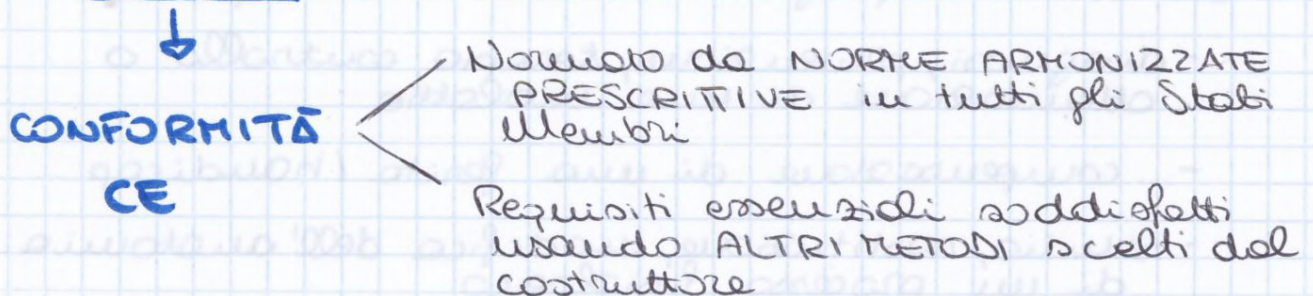 CONFORMITÀ
CE
Normato da NORME ARMONIZZATE
PRESCRITTIVE in tutti gli Stati
Membri
Requisiti essenziali soddisfatti
usando ALTRI METODI scelti dal
costruttore